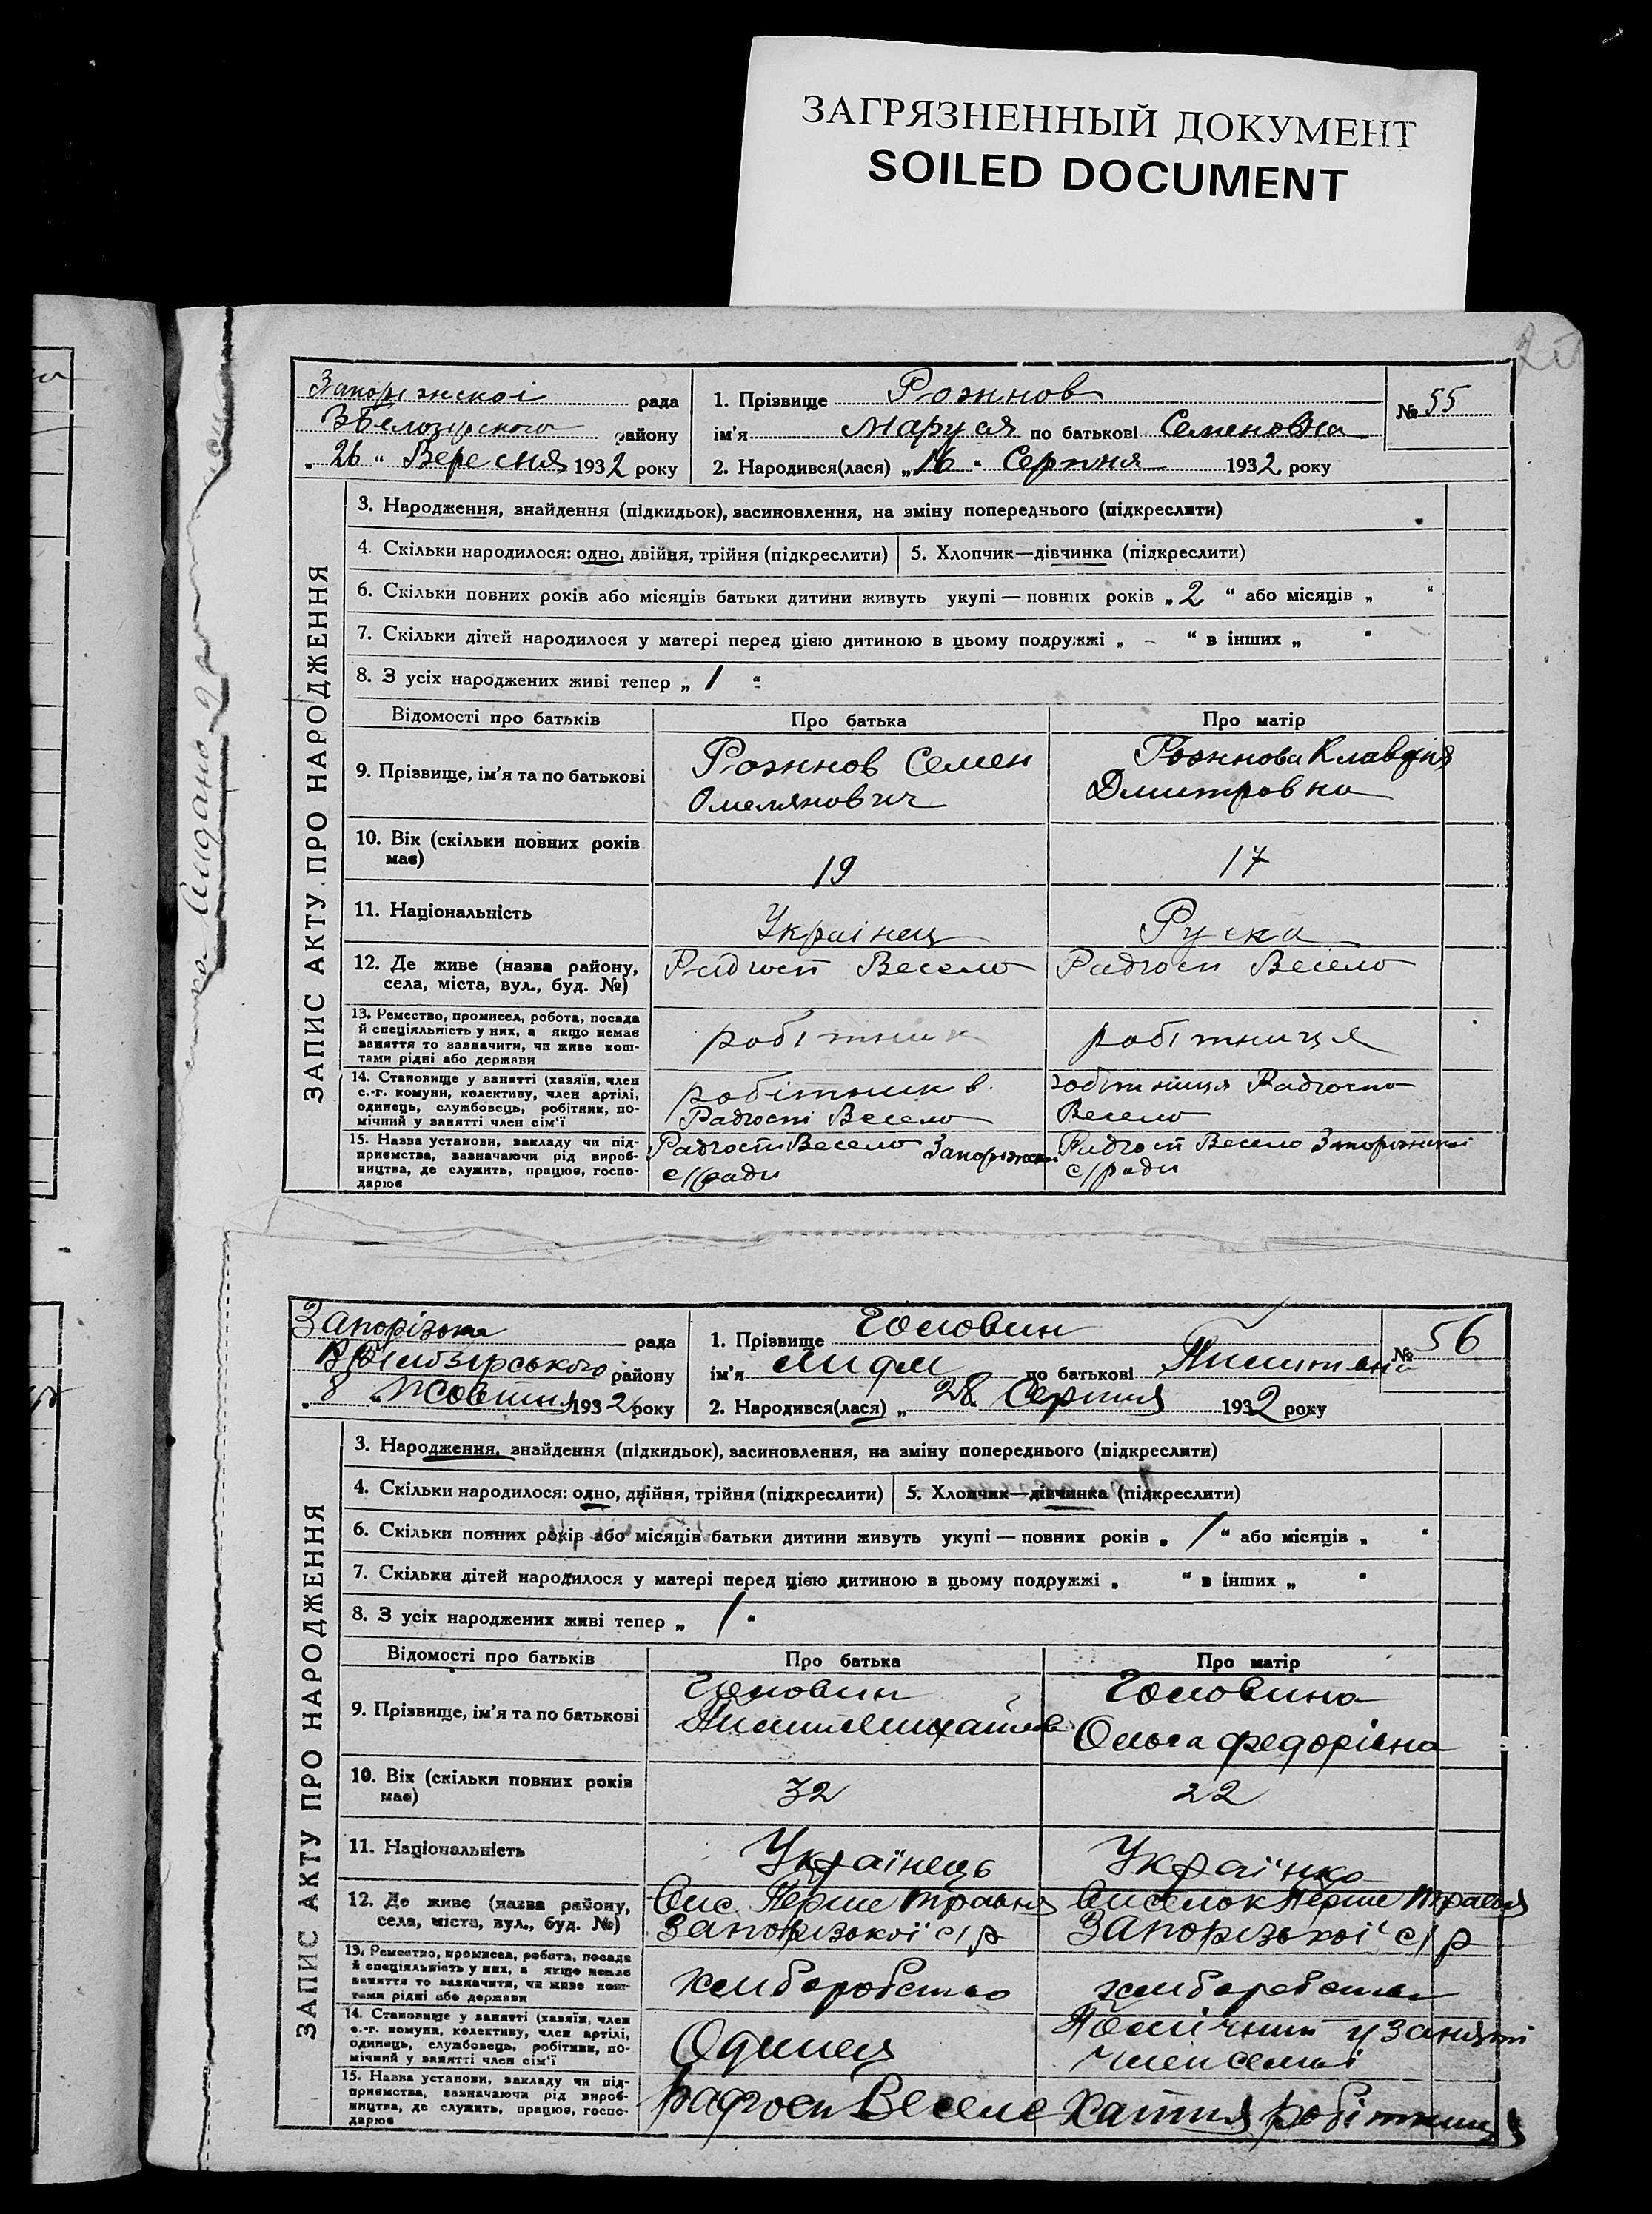 ЗАГРЯЗНЕННЫЙ ДОКУМЕНТ
SOILED DOCUMENT
ЗАПИС АКТУ ПРО НАРОДЖЕННЯ
Запоріжскоі рада
району
„ 26 “ Вересня 1932 року
1. Прізвище Рожнов
ім’я Маруся по батькові Семеновна
№ 55
2. Народився(лася) „16“ Серпня 1932 року
3. Народження, знайдення (підкидьок), засиновлення, на зміну попереднього (підкреслити)
4. Скільки народилося: одно, двійня, трійня (підкреслити) 5. Хлопчик—дівчинка (підкреслити)
6. Скільки повних років або місяців батьки дитини живуть укупі — повних років „ 2 “ або місяців „ “
7. Скільки дітей народилося у матері перед цією дитиною в цьому подружжі „ - “ в інших „ “
8. З усіх народжених живі тепер „ 1 “
Відомості про батьків Про батька Про матір
9. Прізвище, ім’я та по батькові Рожнов Семен Рожнова Клавдія
Омелянович Дмитровна
10. Вік (скільки повних років
має) 19 17
11. Національність Украінец Руска
12. Де живе (назва району,
села, міста, вул., буд. №) Радгосп Весело Радгосп Весело
13. Ремество, промисел, робота, посада
й спеціяльність у них, а якщо немає
заняття то зазначити, чи живе кош-
тами рідні або держави
робітник робітниця
14. Становище у занятті (хазяїн, член
с.-г. комуни, колективу, член артілі,
одинець, службовець, робітник, по-
мічний у занятті член сім’ї
робітник в. робітниця Радгоспа
Радгоспі Весело Весело
15. Назва установи, закладу чи під-
приємства, зазначаючи рід вироб-
ництва, де служить, працює, госпо-
дарює
Радгосп Весело Запоріжскоі Радгосп Весело Запоріжскоі
с//ради с//ради
ЗАПИС АКТУ ПРО НАРОДЖЕННЯ
Запорізька рада
району
„ 8 “ Жовтня 1932 року
1. Прізвище Головин
ім’я Лидя по батькові
№ 56
2. Народився(лася) „ 28 Серпня 1932 року
3. Народження, знайдення (підкидьок), засиновлення, на зміну попереднього (підкреслити)
4. Скільки народилося: одно, двійня, трійня (підкреслити) 5. Хлопчик—дівчинка (підкреслити)
6. Скільки повних років або місяців батьки дитини живуть укупі — повних років „ 1 “ або місяців „ “
7. Скільки дітей народилося у матері перед цією дитиною в цьому подружжі „ “ в інших „ “
8. З усіх народжених живі тепер „ 1 “
Відомості про батьків Про батька Про матір
9. Прізвище, ім’я та по батькові Головин Головина
Ольга Федорівна
10. Вік (скільки повних років
має) 32 22
11. Національність Українець Українка
12. Де живе (назва району,
села, міста, вул., буд. №)
Вис Перше травня Виселок Перше травня
Запорізької с/р Запорізької с/р
13. Ремество, промисел, робота, посада
й спеціяльність у них, а якщо немає
заняття то зазначити, чи живе кош-
тами рідні або держави
хлиборобство хлиборобство
14. Становище у занятті (хазяїн, член
с.-г. комуни, колективу, член артілі,
одинець, службовець, робітник, по-
мічний у занятті член сім’ї
Одинец Помічний у занятті
член семьі
15. Назва установи, закладу чи під-
приємства, зазначаючи рід вироб-
ництва, де служить, працює, госпо-
дарює
радгосп Веселе Хатня робітниця